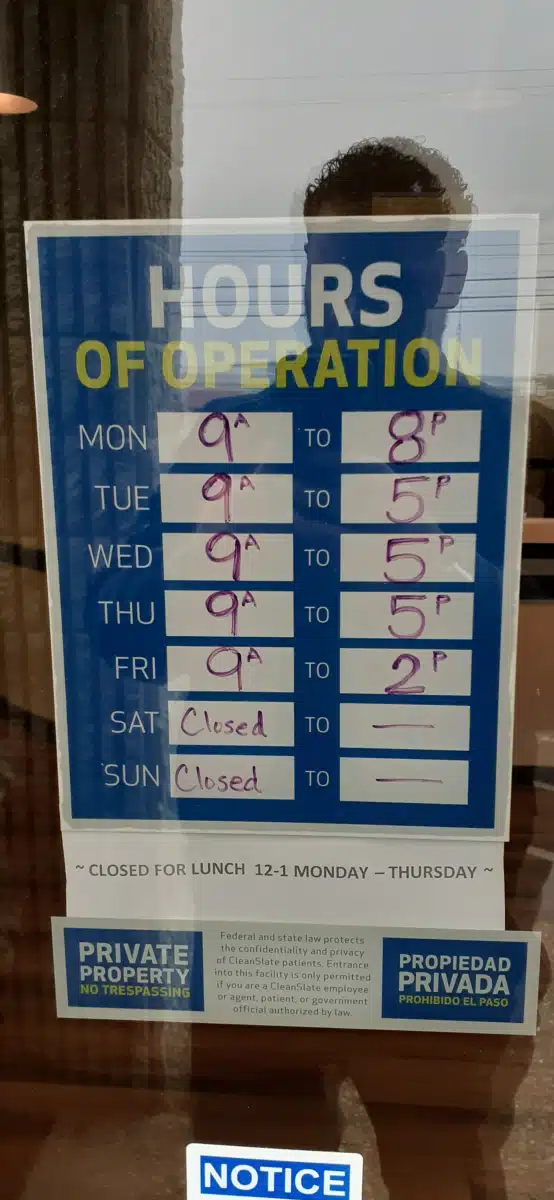 HOURS
OF OPERATION
MON 9A TO 8P
TUE 9A TO 5P
WED 9A TO 5P
THU 9A TO 5P
FRI 9A TO 2P
SAT Closed TO —
SUN Closed TO —
~ CLOSED FOR LUNCH 12-1 MONDAY – THURSDAY ~
PRIVATE
PROPERTY
NO TRESPASSING
Federal and state law protects
the confidentiality and privacy
of CleanSlate patients. Entrance
into this facility is only permitted
if you are a CleanSlate employee
or agent, patient, or government
official authorized by law.
PROPIEDAD
PRIVADA
PROHIBIDO EL PASO
NOTICE